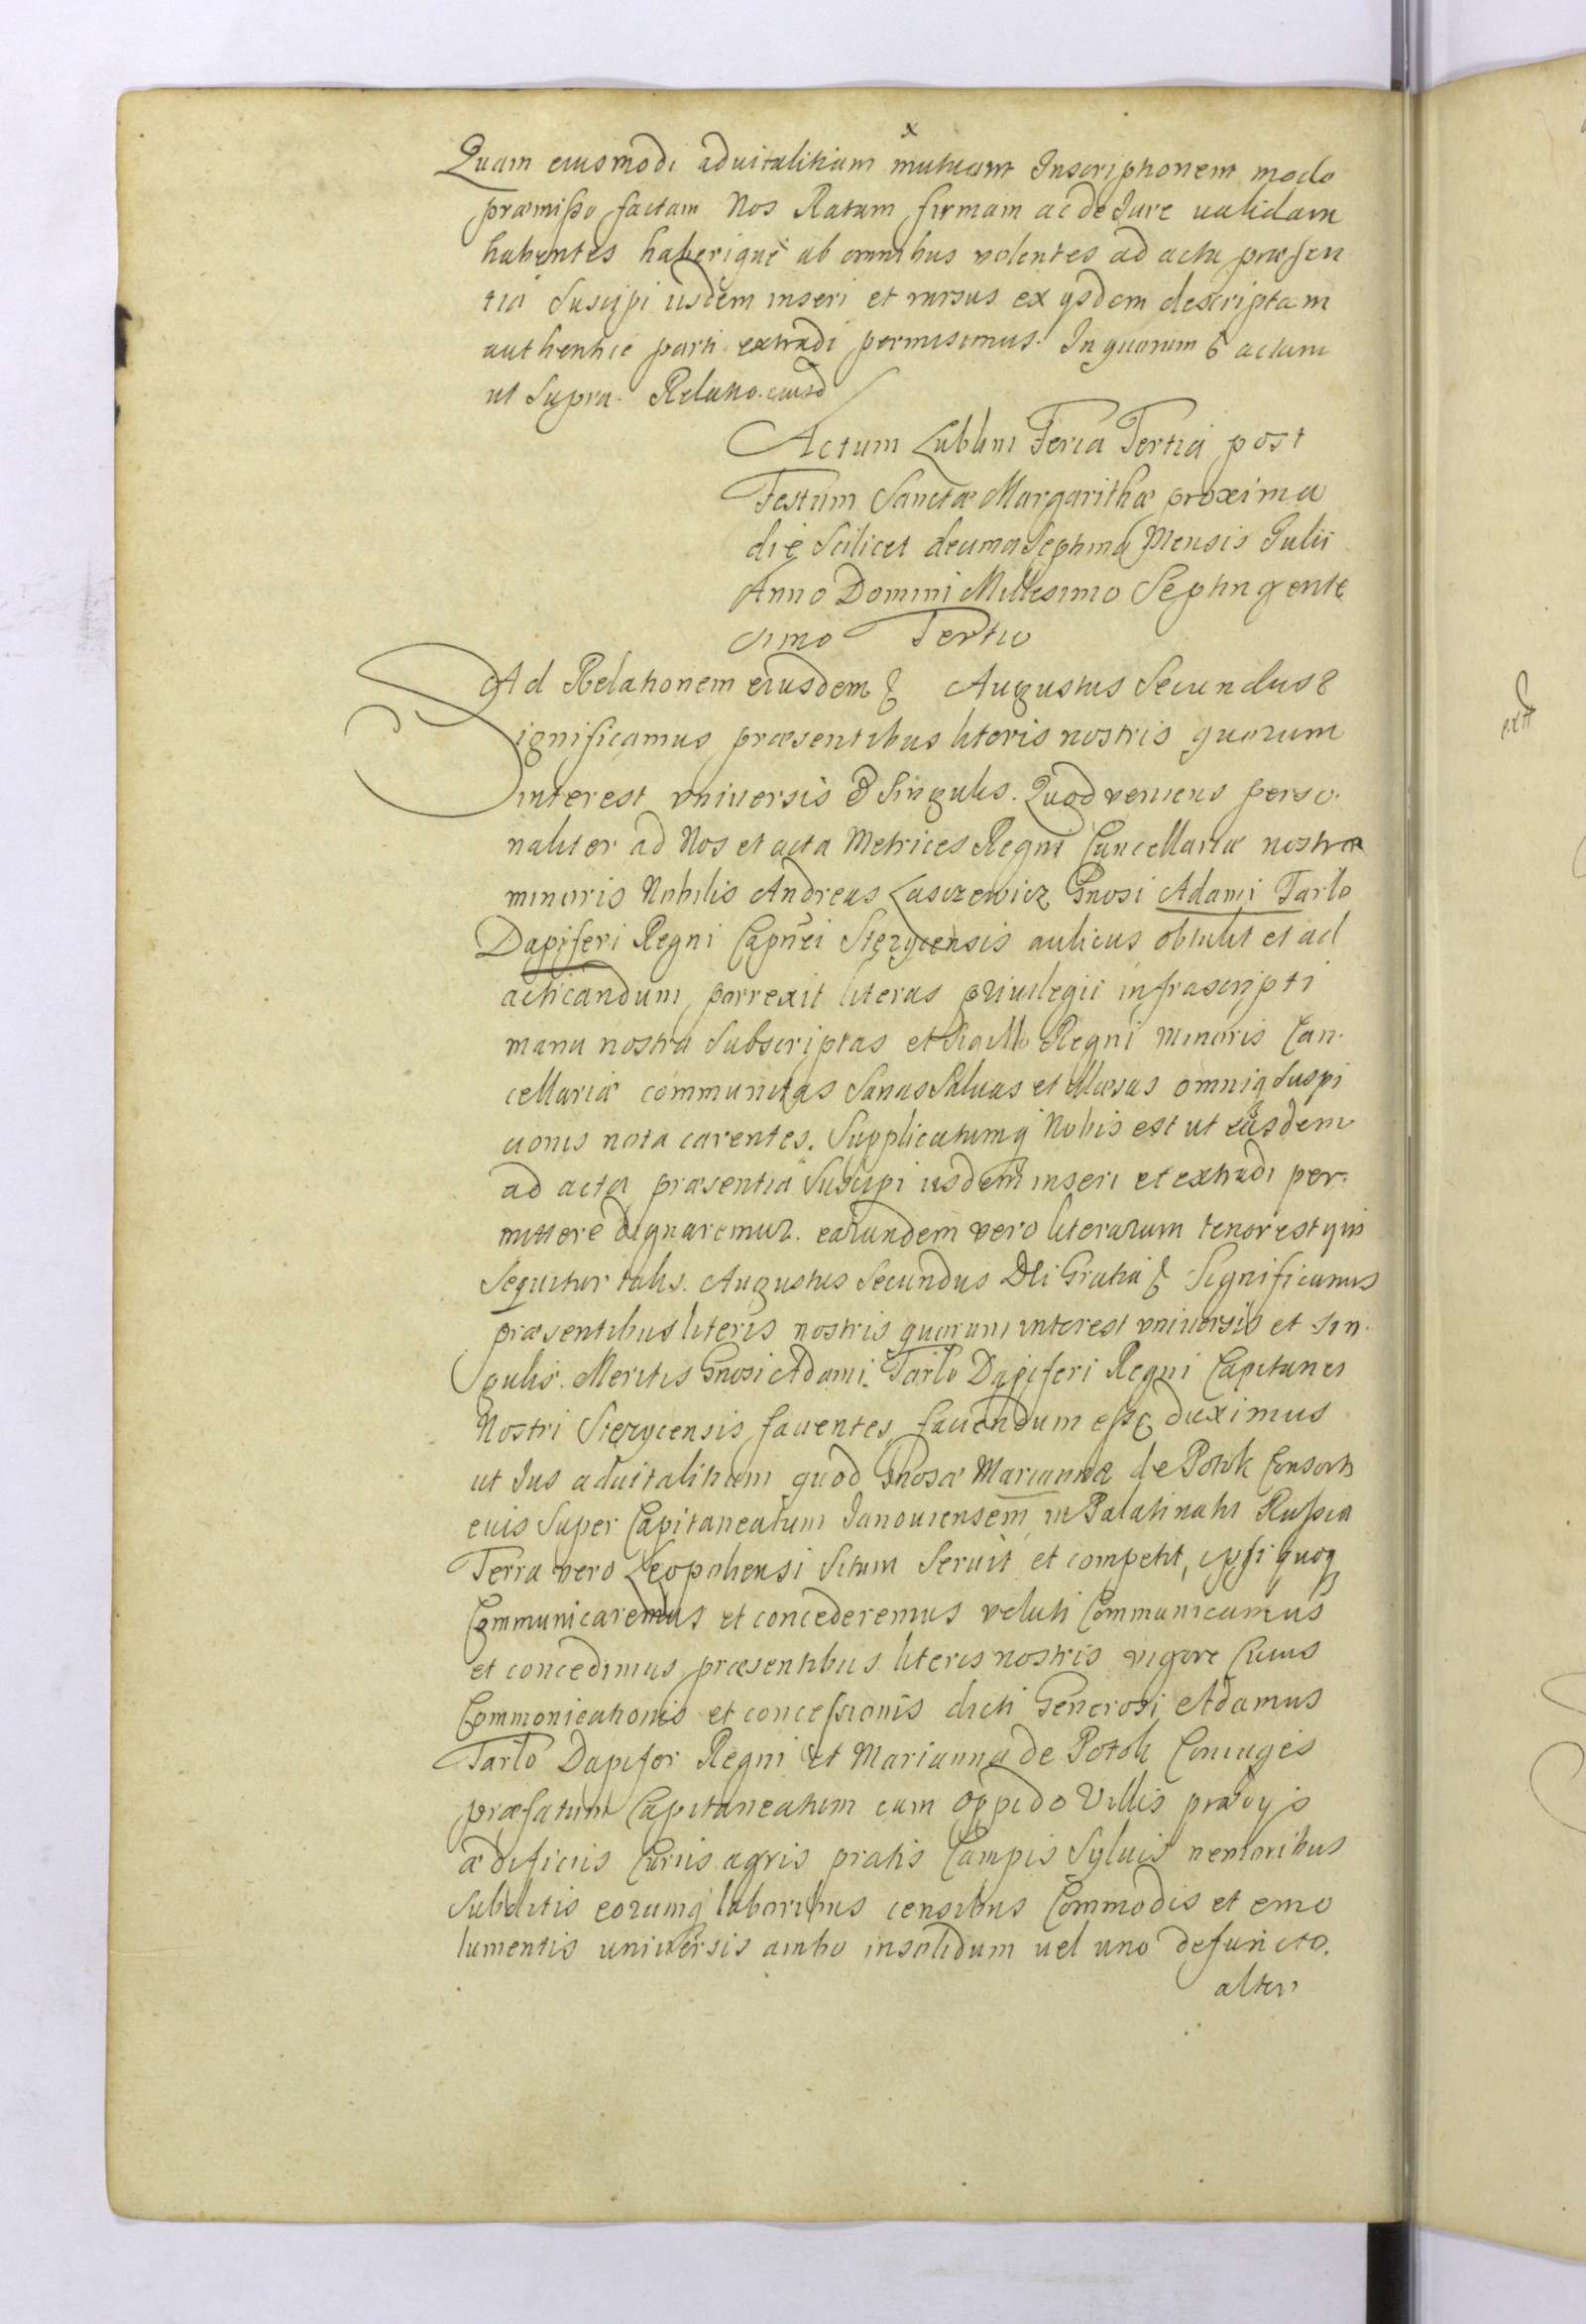 Quam eiusmodi aduitalitiam mutuam Inscriptionem modo
præmisso factam Nos Ratam firmam ac de Jure ualidam
habentes haberique ab omnibus volentes ad acta præsen
tia Suscipi iisdem inseri et rursus ex ysdem descriptam
authentice parti extradi permisimus. In quorum & actum
ut Supra. Relatio eiusd
Actum Lublini Feria Tertia post
Festum Sanctæ Margarithæ proxima
die Scilicet decima Septima Mensis Julii
Anno Domini Millesimo Septingente
simo Tertio
Ad Relationem eiusdem & Augustus Secundus &
Significamus præsentibus literis nostris quorum
interest vniuersis & Singulis. Quod veniens perso
naliter ad Nos et acta Metrices Regni Cancellariæ nostræ
minoris Nobilis Andreas Lasczewicz Gnosi Adami Tarlo
Dapiferi Regni Capnei Stezycensis aulicus obtulit et ad
acticandum porrexit literas priuilegii infrascripti
manu nostra Subscriptas et Sigillo Regni minoris Can
cellariæ communitas Sanas Saluas et illæsas omniq Suspi
cionis nota carentes. Supplicatumq Nobis est ut easdem
ad acta præsentia Suscipi iisdem inseri et extradi per
mittere dignaremur. earundem vero literarum tenor est qui
Sequitur talis. Augustus Secundus Dei Gratia & Significamus
præsentibus literis nostris quorum interest vniuersis et Sin
gulis. Meritis Gnosi Adami Tarlo Dapiferi Regni Capitanei
Nostri Stezycensis fauentes fauendum esse duximus
ut Jus aduitalitium quod Gnosæ Mariannæ de Potok Consorti
eius Super Capitaneatum Janouiensem in Palatinatu Russiæ
Terra vero Leopoliensi Situm Seruit et competit, ipsi quoq
Communicaremus et concederemus veluti Communicamus
et concedimus præsentibus literis nostris vigore Cuius
Commonicationis et concessionis dicti Generosi Adamus
Tarlo Dapifer Regni et Marianna de Potok Coniuges
præfatum Capitaneatum cum oppido Villis prædiys
ædificiis Curiis agris pratis Campis Syluis nemoribus
Subditis eorumq laboribus censibus Commodis et emo
lumentis uniuersis ambo insolidum uel uno defuncto.
alter
extr